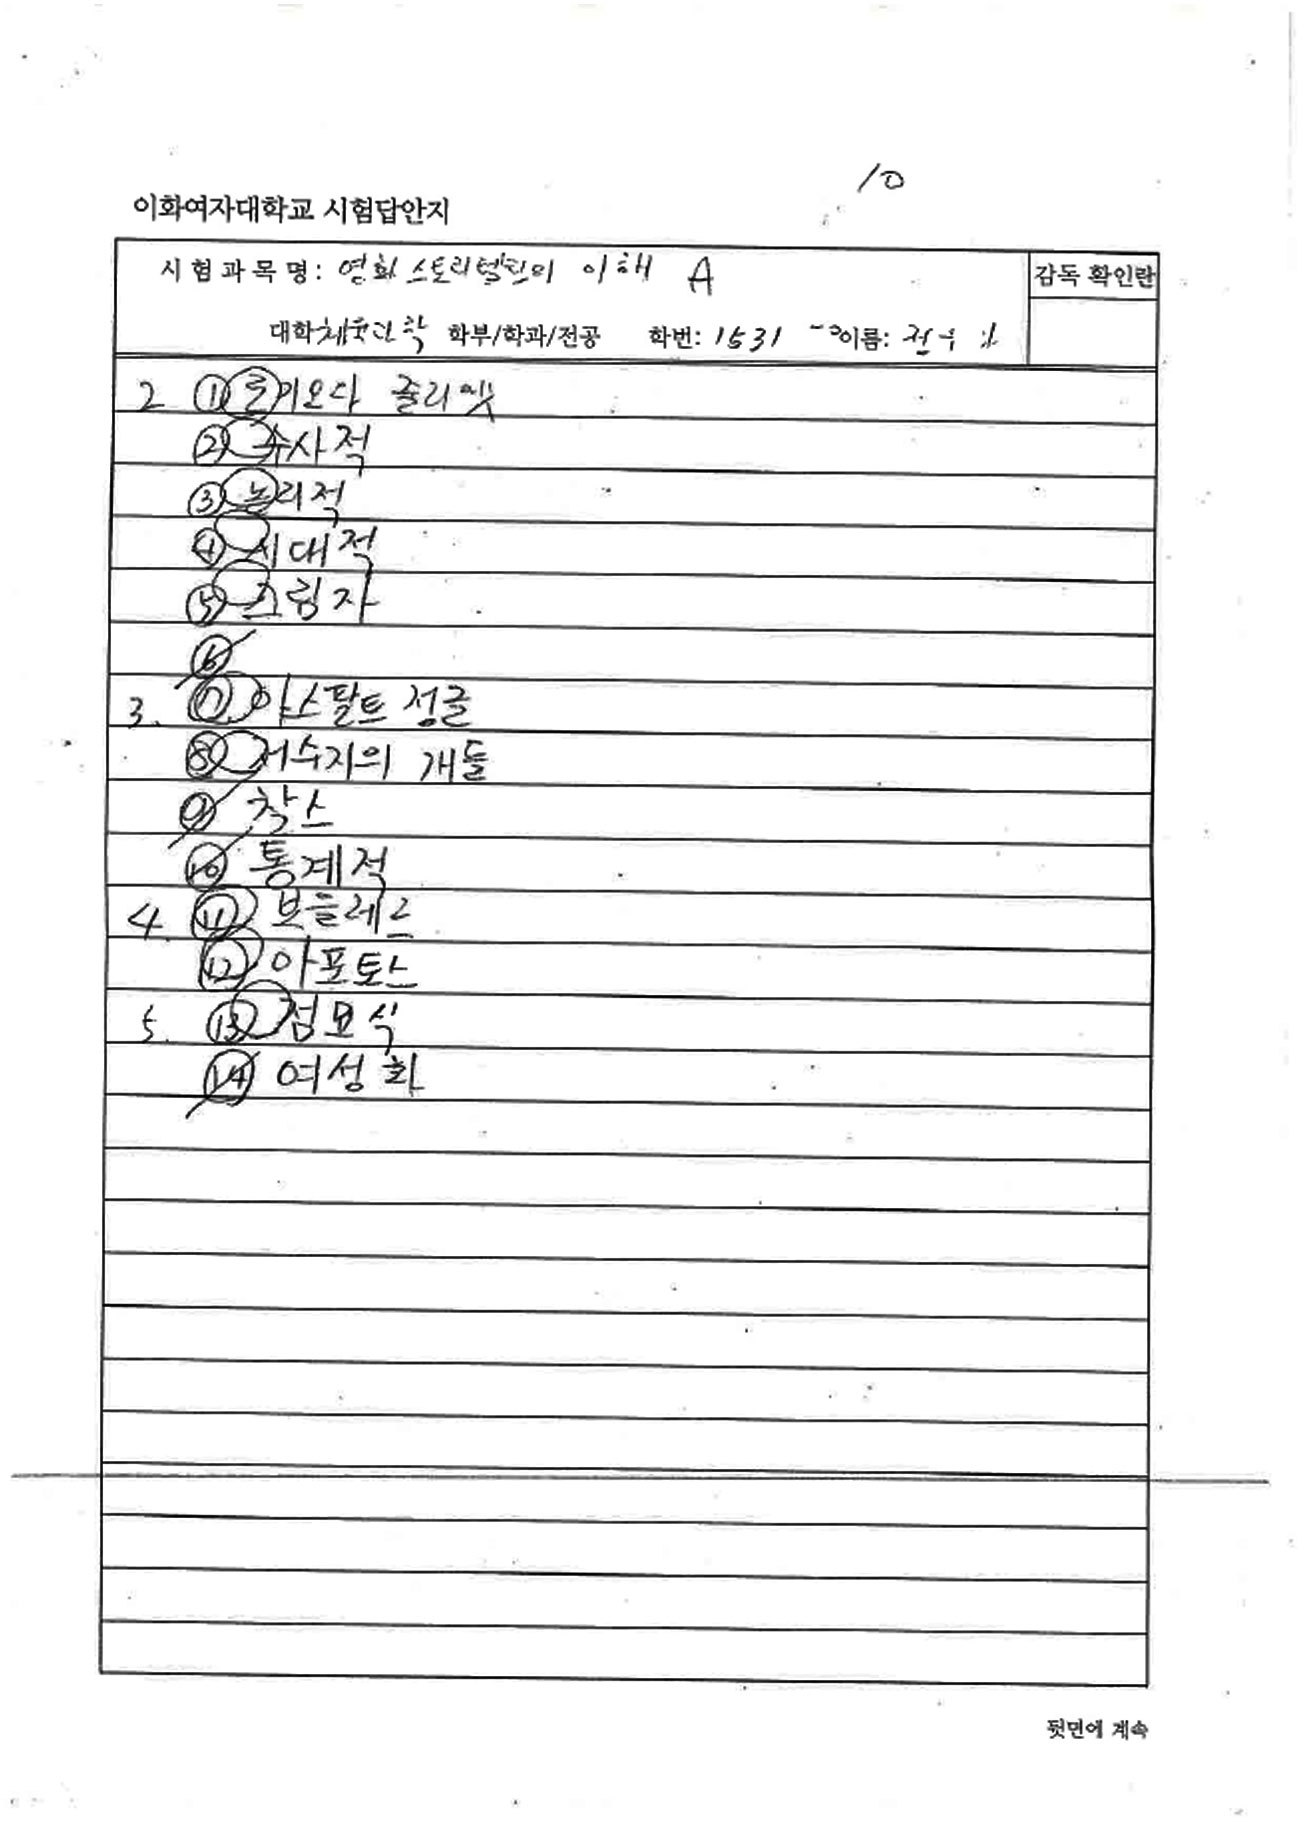 10
이화여자대학교 시험답안지
시험과목명: 영화 스토리텔링의 이해 A
감독 확인란
대학 학부/학과/전공 학번: 1531 이름:
2 ① 오다 줄리엣
② 수사적
③ 논리적
④ 시대적
⑤ 그림자
⑥
3. ⑦ 아스팔트 정글
⑧ 저수지의 개들
⑨ 착스
⑩ 통계적
4. ⑪ 보들레르
⑫ 아포토스
5. ⑬ 점묘식
⑭ 여성화
뒷면에 계속